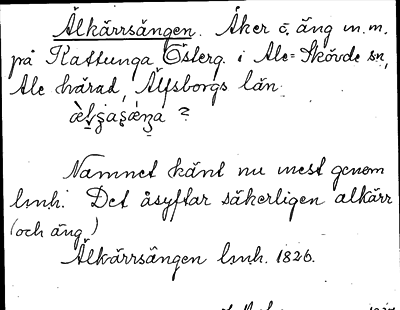 Älkärrsängen. Åker o. äng m.m.
på Kattunga Österg. i Ale-Skövde sn,
Ale härad, Älfsborgs län.
Namnet känt nu mest genom
lmh. Det åsyftar säkerligen alkärr
(och äng.)
Älkärrsängen lmh. 1826.